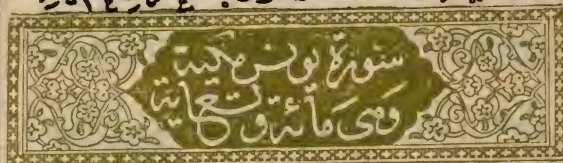 سورة يونس مكية
وهي مائة وتسع آية